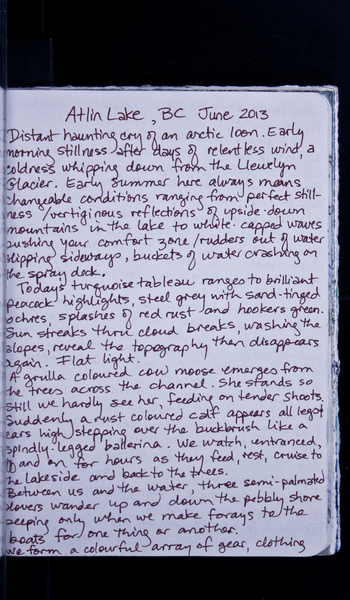 Atlin Lake, BC June 2013
Distant haunting cry of an arctic loon. Early
morning stillness after days of relentless wind, a
coldness whipping down from the Llewelyn
Glacier. Early summer here always means
changeable conditions ranging from perfect still-
ness / vertiginous reflections of upside-down
mountains in the lake to white-capped waves
pushing your comfort zone / rudders out of water
slipping sideways, buckets of water crashing on
the spray deck.
Todays turquoise tableau ranges to brilliant
peacock highlights, steel grey with sand-tinged
ochres, splashes of red rust and hookers green.
Sun streaks thru cloud breaks, washing the
slopes, reveal the topography then disappears
again. Flat light.
A grulla coloured cow moose emerges from
the trees across the channel. She stands so
still we hardly see her, feeding on tender shoots.
Suddenly a rust coloured calf appears all legs &
ears high stepping over the buckbrush like a
spindly-legged ballerina. We watch, entranced,
and on for hours as they feed, rest, cruise to
the lakeside and back to the trees.
Between us and the water, three semi-palmated
plovers wander up and down the pebbly shore
peeping only when we make forays to the
boats for one thing or another.
We form a colourful array of gear, clothing